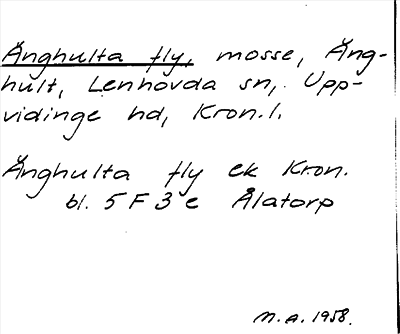 Änghulta fly, mosse, Äng-
hult, Lenhovda sn, Upp-
vidinge hd, Kron.l.
Änghulta fly ek Kron.
bl. 5 F 3 e Ålatorp
M.A. 1958.